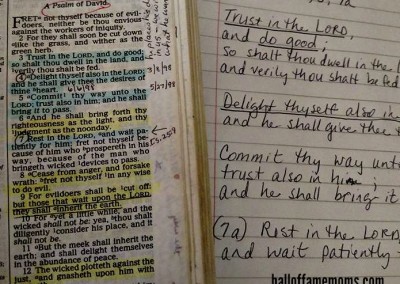 A Psalm of David.
FRET not thyself because of evil-
doers, neither be thou envious
against the workers of iniquity.
2 For they shall soon be cut down
like the grass, and wither as the
green herb.
3 Trust in the LORD, and do good;
so shalt thou dwell in the land, and
verily thou shalt be fed.
4 Delight thyself also in the LORD;
and he shall give thee the desires of
thine heart.
5 Commit thy way unto the
LORD; trust also in him; and he shall
bring it to pass.
6 And he shall bring forth thy
righteousness as the light, and thy
judgment as the noonday.
7 Rest in the LORD, and wait pa-
tiently for him: fret not thyself be-
cause of him who prospereth in his
way, because of the man who
bringeth wicked devices to pass.
8 Cease from anger, and forsake
wrath: fret not thyself in any wise
to do evil.
9 For evildoers shall be cut off:
but those that wait upon the LORD,
they shall inherit the earth.
10 For yet a little while, and the
wicked shall not be: yea, thou shalt
diligently consider his place, and it
shall not be.
11 But the meek shall inherit the
earth; and shall delight themselves
in the abundance of peace.
12 The wicked plotteth against the
just, and gnasheth upon him with
Trust in the LORD,
and do good;
so shalt thou dwell in the
and verily thou shalt be fed
Delight thyself also in
and he shall give thee
Commit thy way unt
trust also in him;
and he shall bring it
(7a) Rest in the LORD
and wait patiently
halloffamemoms.com